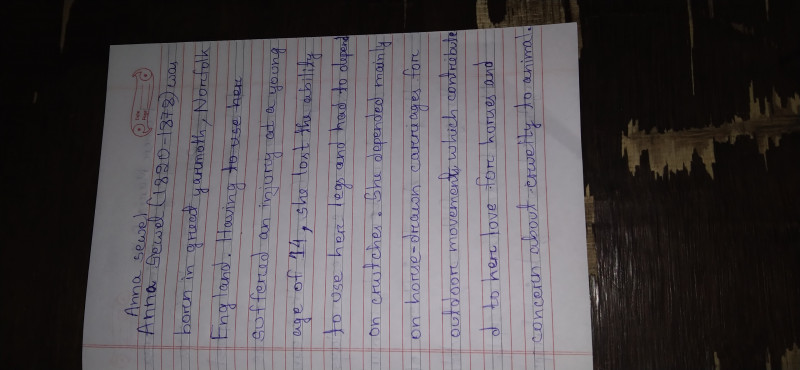 Anna sewel
Anna Sewel (1820-1878) was
born in great yarmoth, Norfolk
England. Having to use her
suffered an injury at a young
age of 14, she lost the ability
to use her legs and had to depend
on crutches. She depended mainly
on horse-drawn carriages for
outdoor movements which contribute
d to her love for horses and
concern about cruelty to animal.